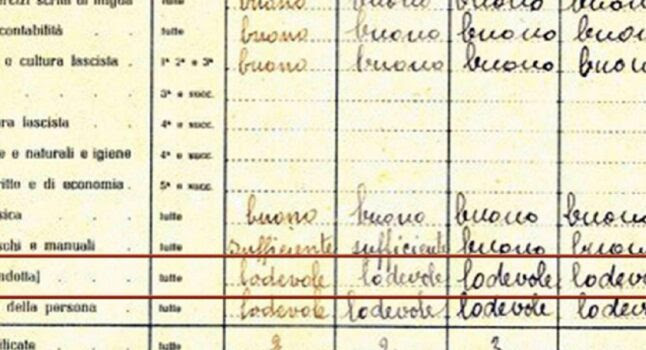 buono buono buono
contabilità . . tutte buono buono buono
e cultura fascista . 1ª 2ª e 3ª buono buono buono
3ª e succ.
ra fascista . . 4ª e succ.
e e naturali e igiene 4ª e succ.
ritto e di economia . 5ª e succ.
sica . . tutte buono buono buono
schi e manuali . tutte sufficiente sufficiente buono
ndotta] tutte lodevole lodevole lodevole
della persona . tutte lodevole lodevole lodevole
ificate . . tutte 2 2 3